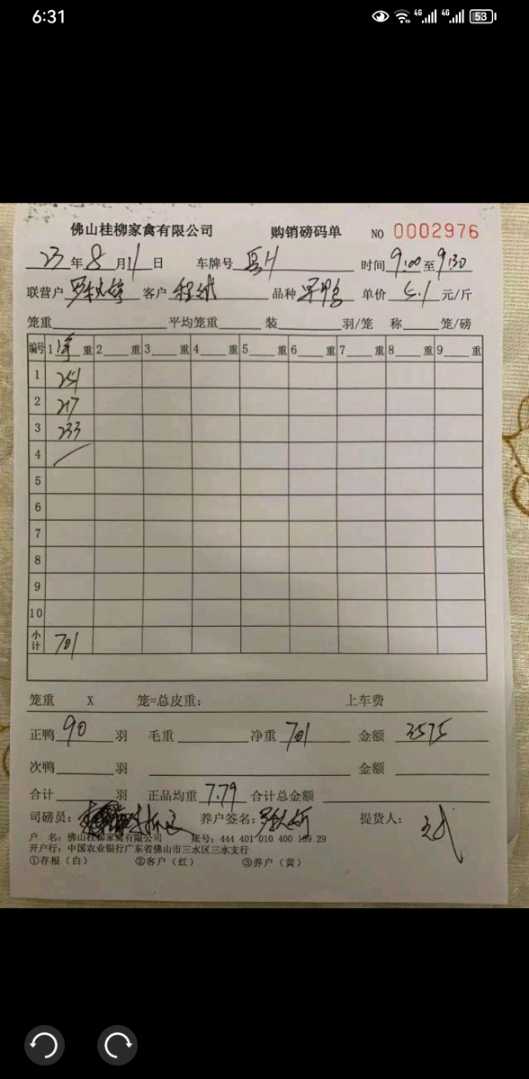 6:31
4G 4G 53
佛山桂柳家禽有限公司 购销磅码单 NO 0002976
23年8月11日 车牌号 时间9:00至9:30
联营户 客户 品种 单价5.1元/斤
笼重 平均笼重 装 羽/笼 称 笼/磅
编号 1 净重 2 重 3 重 4 重 5 重 6 重 7 重 8 重 9 重
1 251
2 217
3 233
4
5
6
7
8
9
10
小计 701
笼重 X 笼=总皮重: 上车费
正鸭90羽 毛重 净重701 金额3575
次鸭 羽 金额
合计 羽 正品均重7.79 合计总金额
司磅员: 养户签名: 提货人:
户 名:佛山桂柳家禽有限公司 账号:444 401 010 400 169 29
开户行:中国农业银行广东省佛山市三水区三水支行
①存根(白) ②客户(红) ③养户(黄)